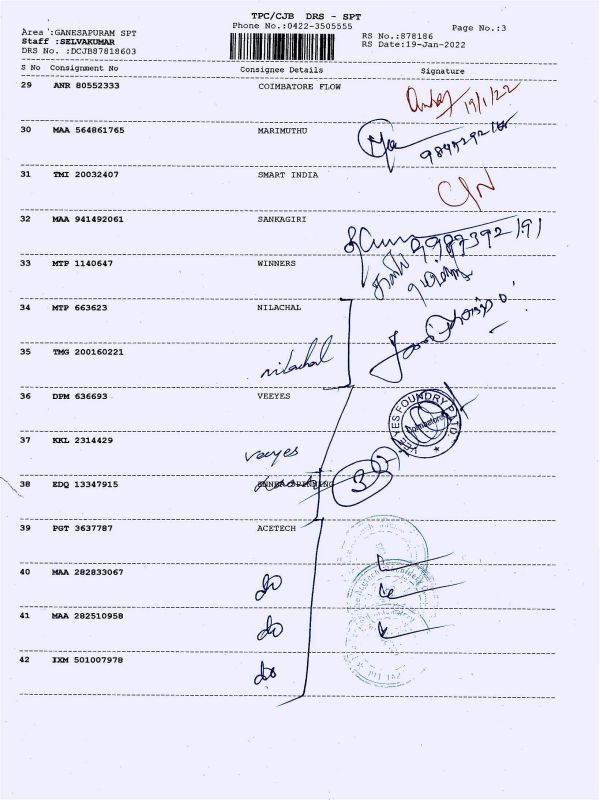 TPC/CJB DRS - SPT
Phone No.:0422-3505555
Page No.:3
Area :GANESAPURAM SPT
Staff :SELVAKUMAR
DRS No. :DCJB87818603
RS No.:878186
RS Date:19-Jan-2022
S No Consignment No Consignee Details Signature
29 ANR 80552333 COIMBATORE FLOW
19/1/22
30 MAA 564861765 MARIMUTHU
31 TMI 20032407 SMART INDIA
32 MAA 941492061 SANKAGIRI
33 MTP 1140647 WINNERS
34 MTP 663623 NILACHAL
35 TMG 200160221
nilachal
36 DPM 636693 VEEYES
37 KKL 2314429
veeyes
38 EDQ 13347915
39 PGT 3637787 ACETECH
40 MAA 282833067 do
41 MAA 282510958 do
42 IXM 501007978 do